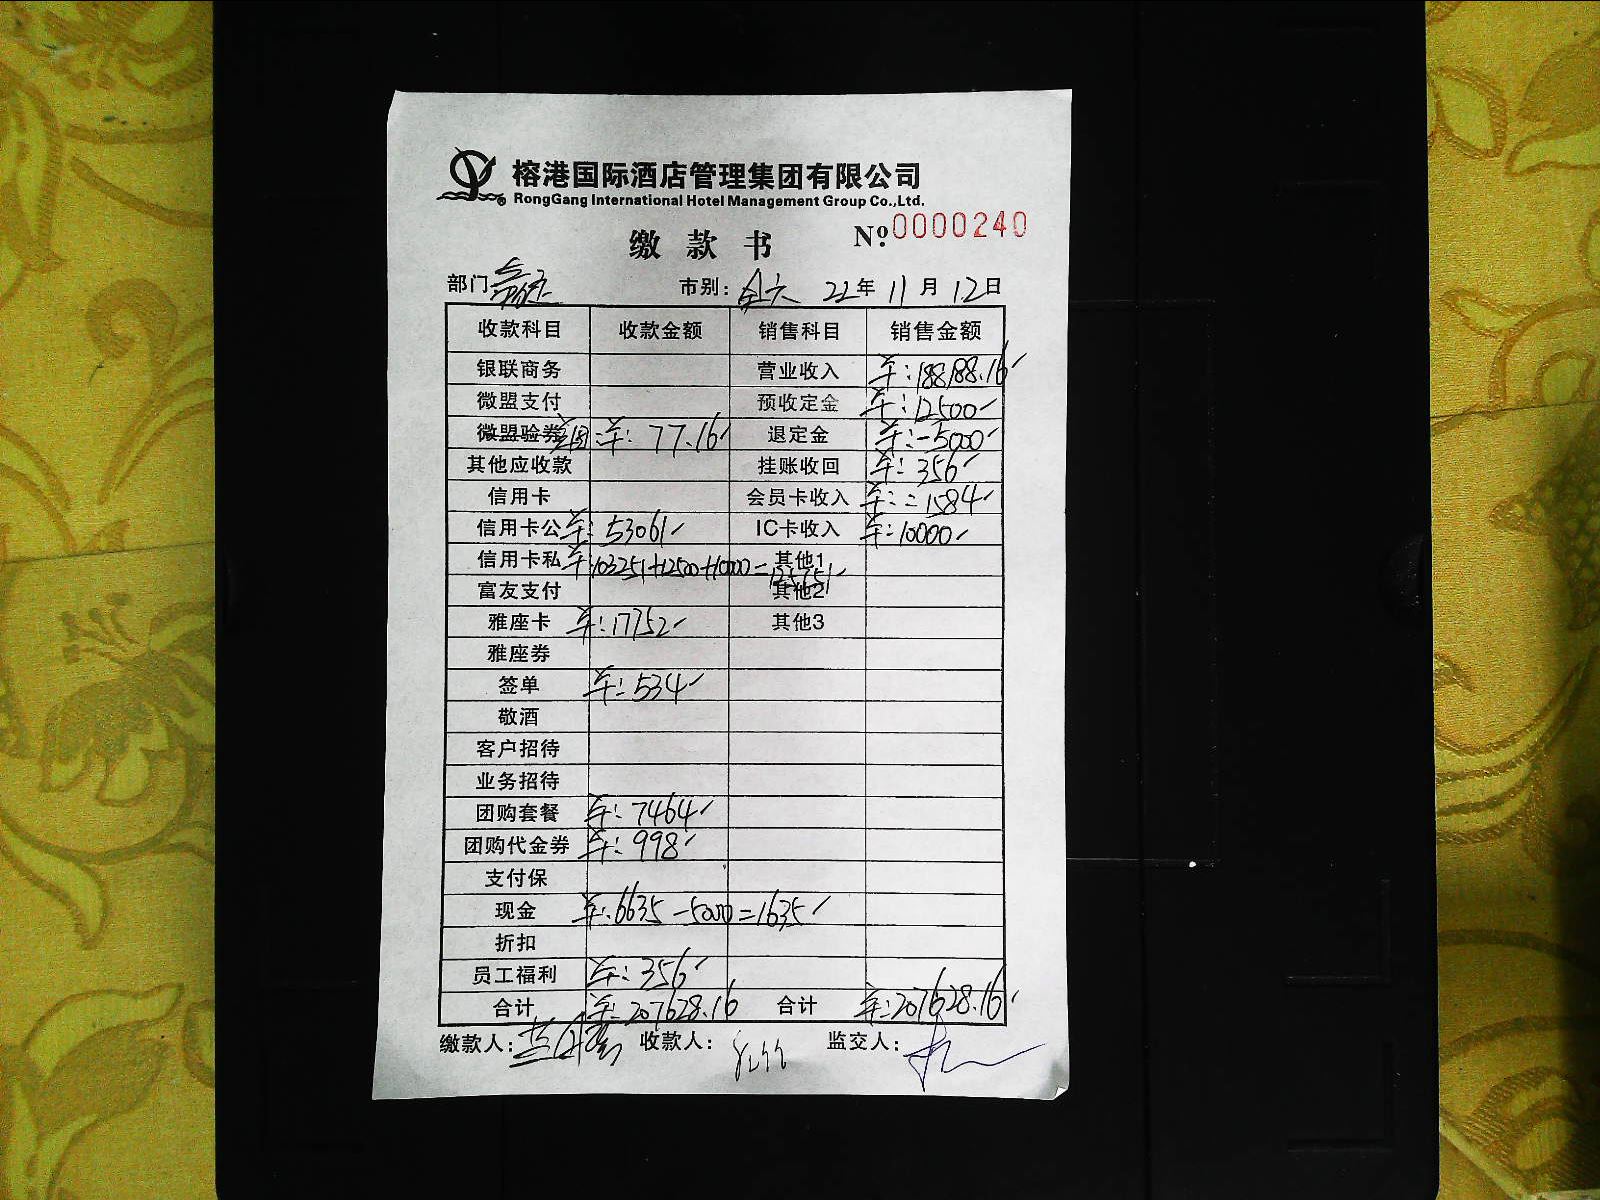 榕港国际酒店管理集团有限公司
RongGang International Hotel Management Group Co.,Ltd.
缴款书 №0000240
部门 市别: 22年11月12日
收款科目 收款金额 销售科目 销售金额
银联商务 营业收入 ¥:188188.16
微盟支付 预收定金 ¥:12500
微盟验券 美团 ¥:77.16 退定金 ¥:-5000
其他应收款 挂账收回 ¥:356
信用卡 会员卡收入 ¥:1584
信用卡公 ¥:53061 IC卡收入 ¥:10000
信用卡私 ¥:103251+12500+10000=125751 其他1
富友支付 其他2
雅座卡 ¥:17752 其他3
雅座券
签单 ¥:534
敬酒
客户招待
业务招待
团购套餐 ¥:7464
团购代金券 ¥:998
支付保
现金 ¥:6635-5000=1635
折扣
员工福利 ¥:356
合计 ¥:207628.16 合计 ¥:207628.16
缴款人: 收款人: 监交人: